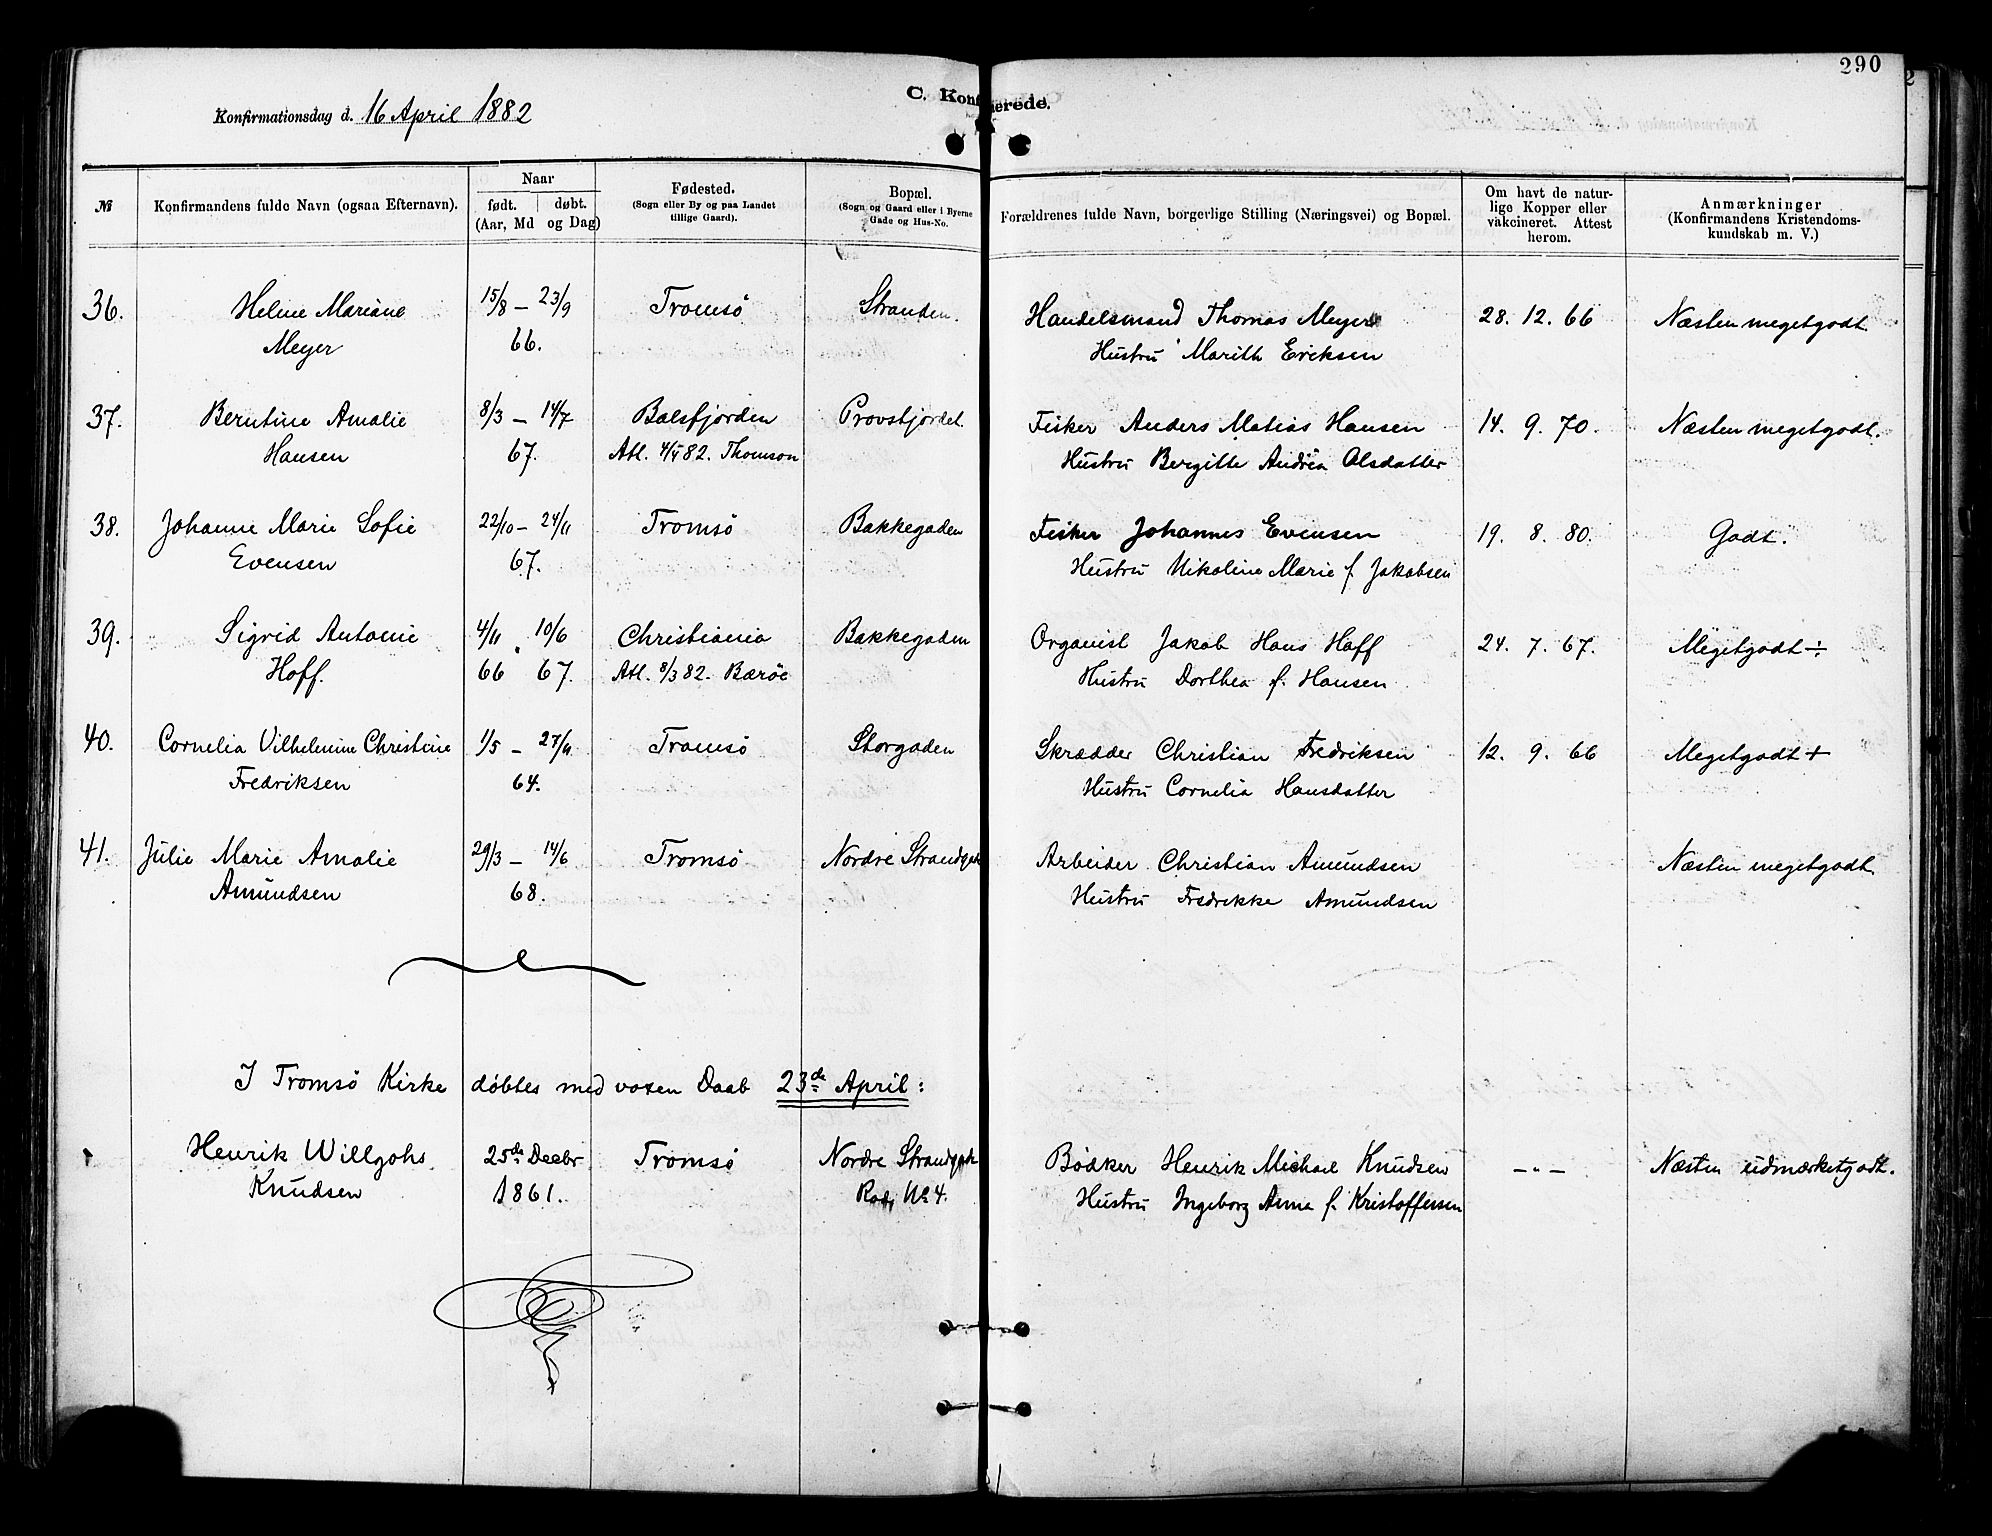 290
C. Konfirmerede.
Konfirmationsdag d. 16 April 1882
No
Konfirmandens fulde Navn (ogsaa Efternavn).
Naar
født. døbt.
(Aar, Md og Dag)
Fødested.
(Sogn eller By og paa Landet
tillige Gaard).
Bopæl.
(Sogn og Gaard eller i Byerne
Gade og Hus-No.
Forældrenes fulde Navn, borgerlige Stilling (Næringsvei) og Bopæl.
Om havt de natur-
lige Kopper eller
vakcineret. Attest
herom.
Anmærkninger
(Konfirmandens Kristendoms-
kundskab m. V.)
36. Heline Mariane 15/8 – 23/9 Tromsö Stranden. Handelsmand Thomas Meyer 28. 12. 66 Næsten megetgodt.
Meyer 66. Hustru Marith Eriksen
37. Berntine Amalie 8/3 – 14/7 Balsfjorden Provstjordet. Fisker Anders Matias Hansen 14. 9. 70. Næsten megetgodt.
Hansen 67. Atl. 4/4 82. Thomson Hustru Bergitte Andrea Olsdatter
38. Johanne Marie Sofie 22/10 – 24/11 Tromsö Bakkegaden Fisker Johannes Evensen 19. 8. 80. Godt.
Evensen 67. Hustru Nikoline Marie f. Jakobsen
39. Sigrid Antonie 4/11 10/6 Christiania Bakkegaden Organist Jakob Hans Hoff 24. 7. 67. Megetgodt ÷
Hoff. 66 67. Atl. 8/3 82. Bærøe Hustru Dorthea f. Hansen
40. Cornelia Vilhelmine Christine 1/5 – 27/11 Tromsö Storgaden Skrædder Christian Fredriksen 12. 9. 66 Megetgodt +
Fredriksen 64. Hustru Cornelia Hansdatter
41. Julie Marie Amalie 29/3 – 14/6 Tromsö Nordre Strandgk Arbeider Christian Amundsen Næsten megetgodt.
Amundsen 68. Hustru Fredrikke Amundsen
I Tromsö Kirke döbtes med voxen Daab 23de April:
Henrik Willgohs 25de Decbr Tromsö Nordre Strandgk Bödker Henrik Michael Knudsen –"– Næsten udmærketgodt.
Knudsen 1861. No 4. Hustru Ingeborg Anna f. Kristoffersen